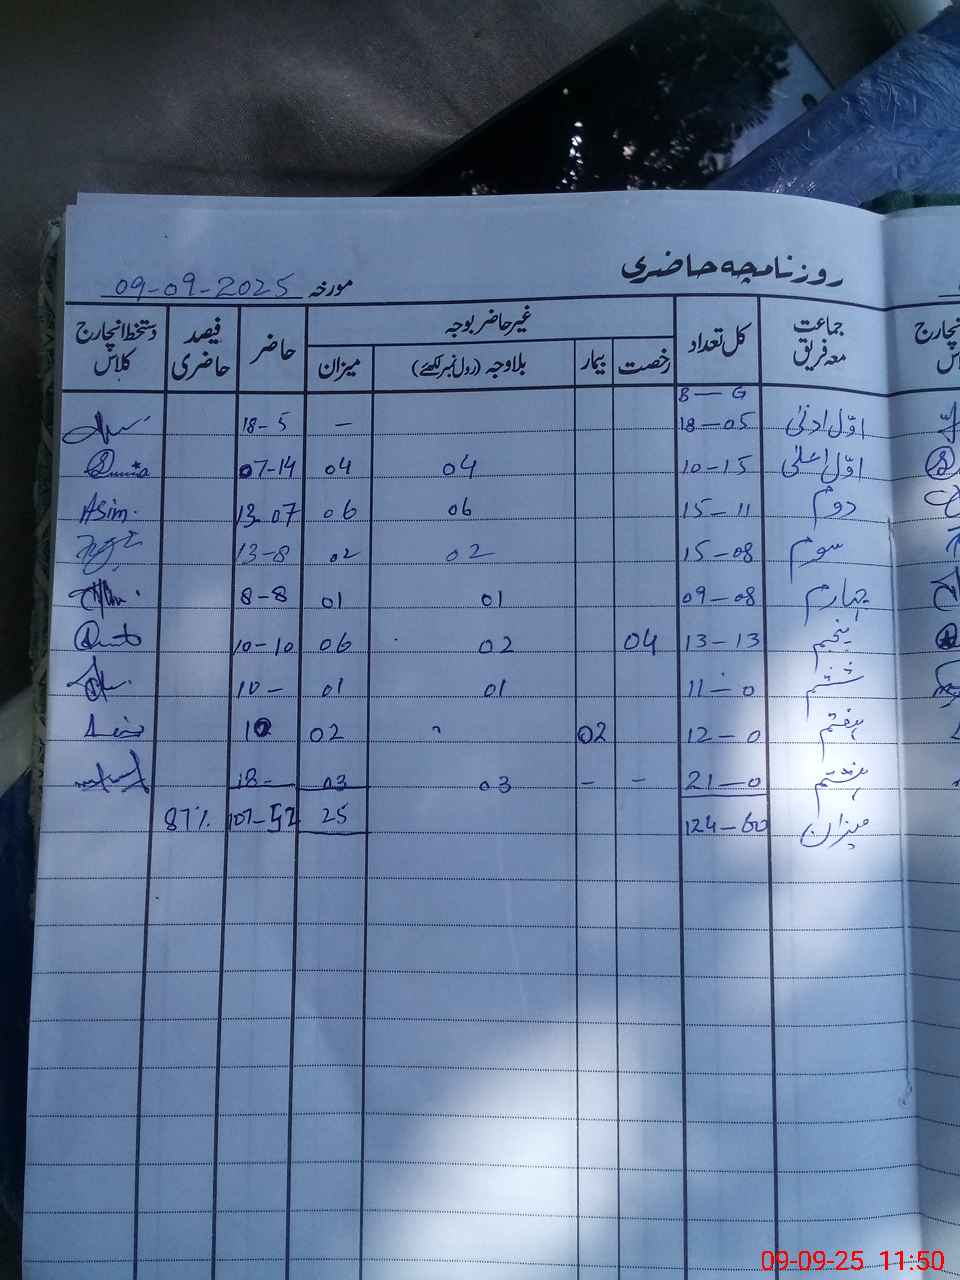 روزنامچہ حاضری
مورخہ 09-09-2025
جماعت معہ فریق | کل تعداد | غیر حاضر بوجہ | حاضر | فیصد حاضری | دستخط انچارج کلاس
رخصت | بیمار | بلاوجہ (رول نمبر لکھئے) | میزان
B — G
اوّل ادنیٰ | 18-05 | – | 18-5
اوّل اعلیٰ | 10-15 | 04 | 04 | 07-14
دوم | 15-11 | 06 | 06 | 13-07 | Asim.
سوم | 15-08 | 02 | 02 | 13-8
چہارم | 09-08 | 01 | 01 | 8-8
پنجم | 13-13 | 04 | 02 | 06 | 10-10
ششم | 11-0 | 01 | 01 | 10-
ہفتم | 12-0 | 02 | 02 | 10
ہشتم | 21-0 | – | – | 03 | 03 | 18-
میزان | 124-60 | 25 | 107-52 | 87%
09-09-25 11:50